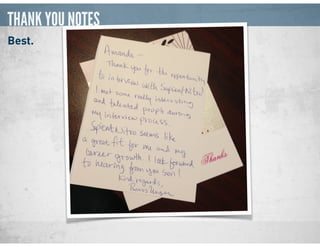 THANK YOU NOTES
Best.
Amanda -
Thank you for the opportunity
to interview with Sapient/Nitro!
I met some really interesting
and talented people during
my interview process.
SapientNitro seems like
a great fit for me and my
career growth. I look forward
to hearing from you soon!
Kind regards,
Thanks